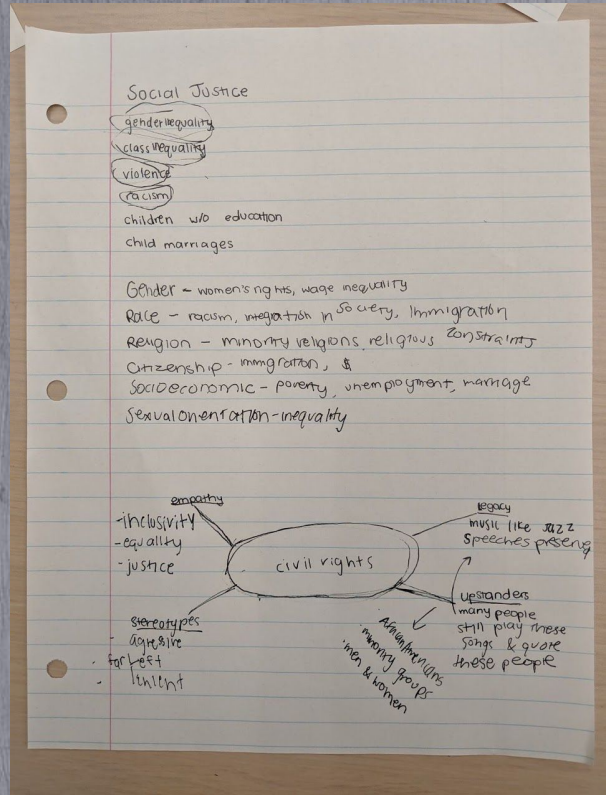 Social Justice
gender inequality
class inequality
violence
racism
children w/o education
child marriages
Gender - women's rights, wage inequality
Race - racism, integration in society, immigration
Religion - minority religions, religious constraints
Citizenship - immigration, $
Socioeconomic - poverty, unemployment, marriage
Sexual orientation - inequality
empathy
-inclusivity
-equality
-justice
civil rights
legacy
music like Jazz
speeches preserve
stereotypes
- agressive
· far left
upstanders
many people
still play these
songs & quote
these people
· minority groups
· men & women